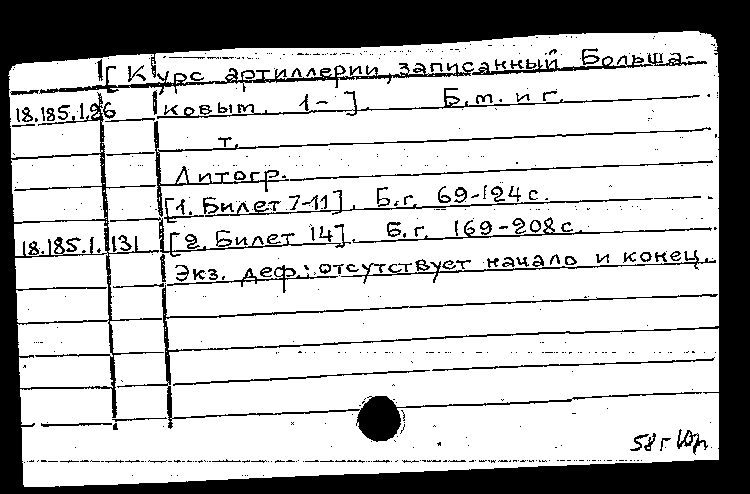 [Курс артиллерии, записанный Больша-
18.185.1.26 ковым. 1- ]. Б.м. и г.
т.
Литогр.
[1. Билет 7-11]. Б.г. 69-124 с.
18.185.1.131 [2. Билет 14]. Б.г. 169-208 с.
Экз. деф.: отсутствует начало и конец.
58 г